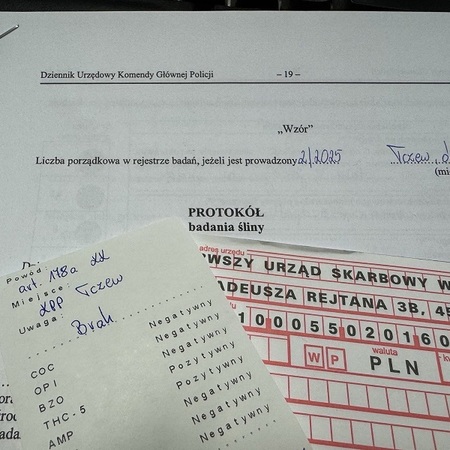 Dziennik Urzędowy Komendy Głównej Policji – 19 –
„Wzór”
Liczba porządkowa w rejestrze badań, jeżeli jest prowadzony 2/2025 Tczew, d
(mi
PROTOKÓŁ
badania śliny
Powód:
art. 178a KK
Miejsce:
KPP Tczew
Uwaga:
Brak
Negatywny
COC Negatywny
OPI Negatywny
BZO Pozytywny
THC-5 Pozytywny
AMP Negatywny
Negatywny
Negatywny
adres urzędu
RWSZY URZĄD SKARBOWY W
ADEUSZA REJTANA 3B, 45
100055020160
WP
waluta
PLN